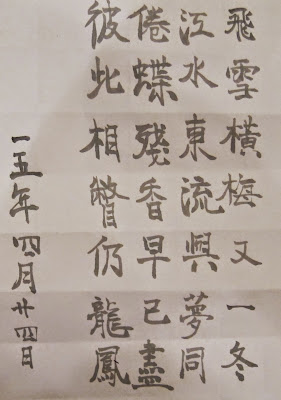 飛雪橫梅又一冬
江水東流與夢同
倦蝶殘香早已盡
彼此相瞥仍龍鳳
一五年四月廿四日